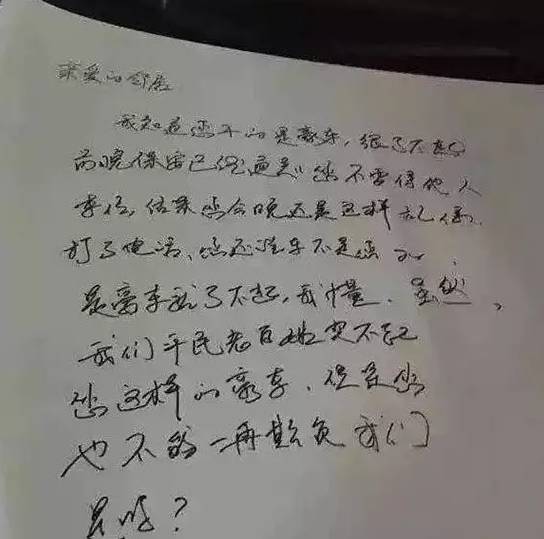 亲爱的邻居
我知道您开的是豪车，很了不起
前晚保安已经通知您不要停他人
车位，结果您今晚还是这样乱停，
打了电话，您还说车不是您的
是豪车就了不起，我懂，虽然，
我们平民老百姓买不起
您这样的豪车，但是您
也不能一再欺负我们
是吧？